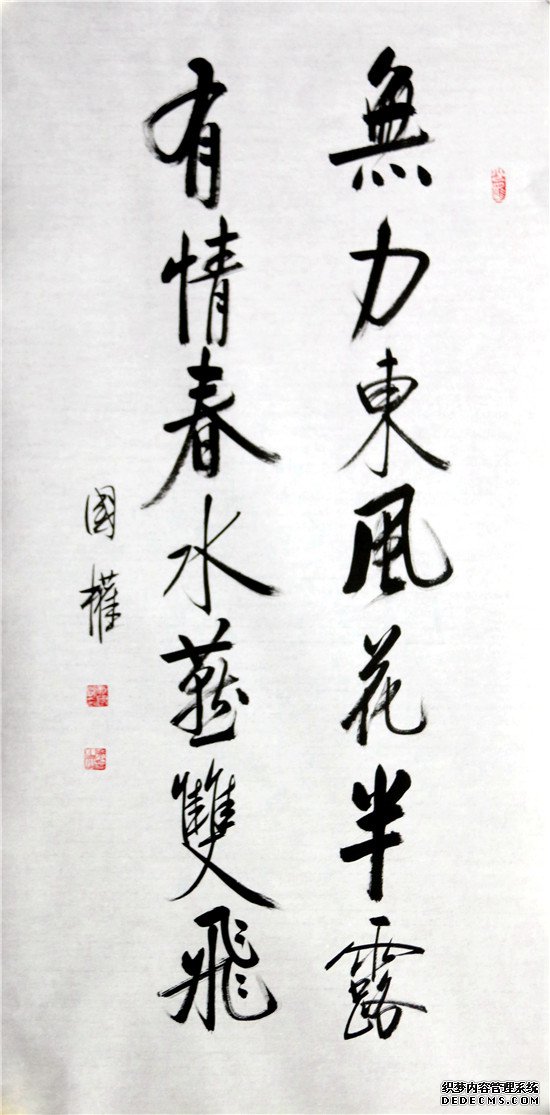 無力東風花半露
有情春水燕雙飛
國權
织梦内容管理系统
DEDECMS.COM